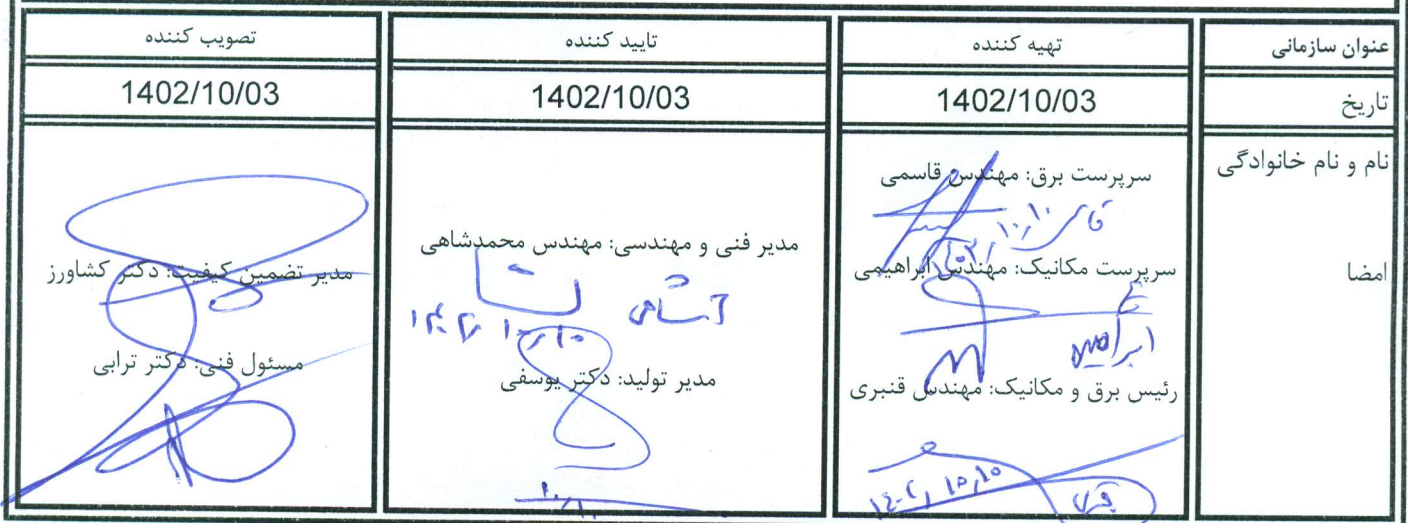 عنوان سازمانی
تهیه کننده
تایید کننده
تصویب کننده
تاریخ
1402/10/03
1402/10/03
1402/10/03
نام و نام خانوادگی
امضا
سرپرست برق: مهندس قاسمی
سرپرست مکانیک: مهندس ابراهیمی
رئیس برق و مکانیک: مهندس قنبری
۱۴۰۲/۱۰/۱۰
مدیر فنی و مهندسی: مهندس محمدشاهی
۱۴۰۲/۱۰/۱۰
مدیر تولید: دکتر یوسفی
مدیر تضمین کیفیت: دکتر کشاورز
مسئول فنی: دکتر ترابی